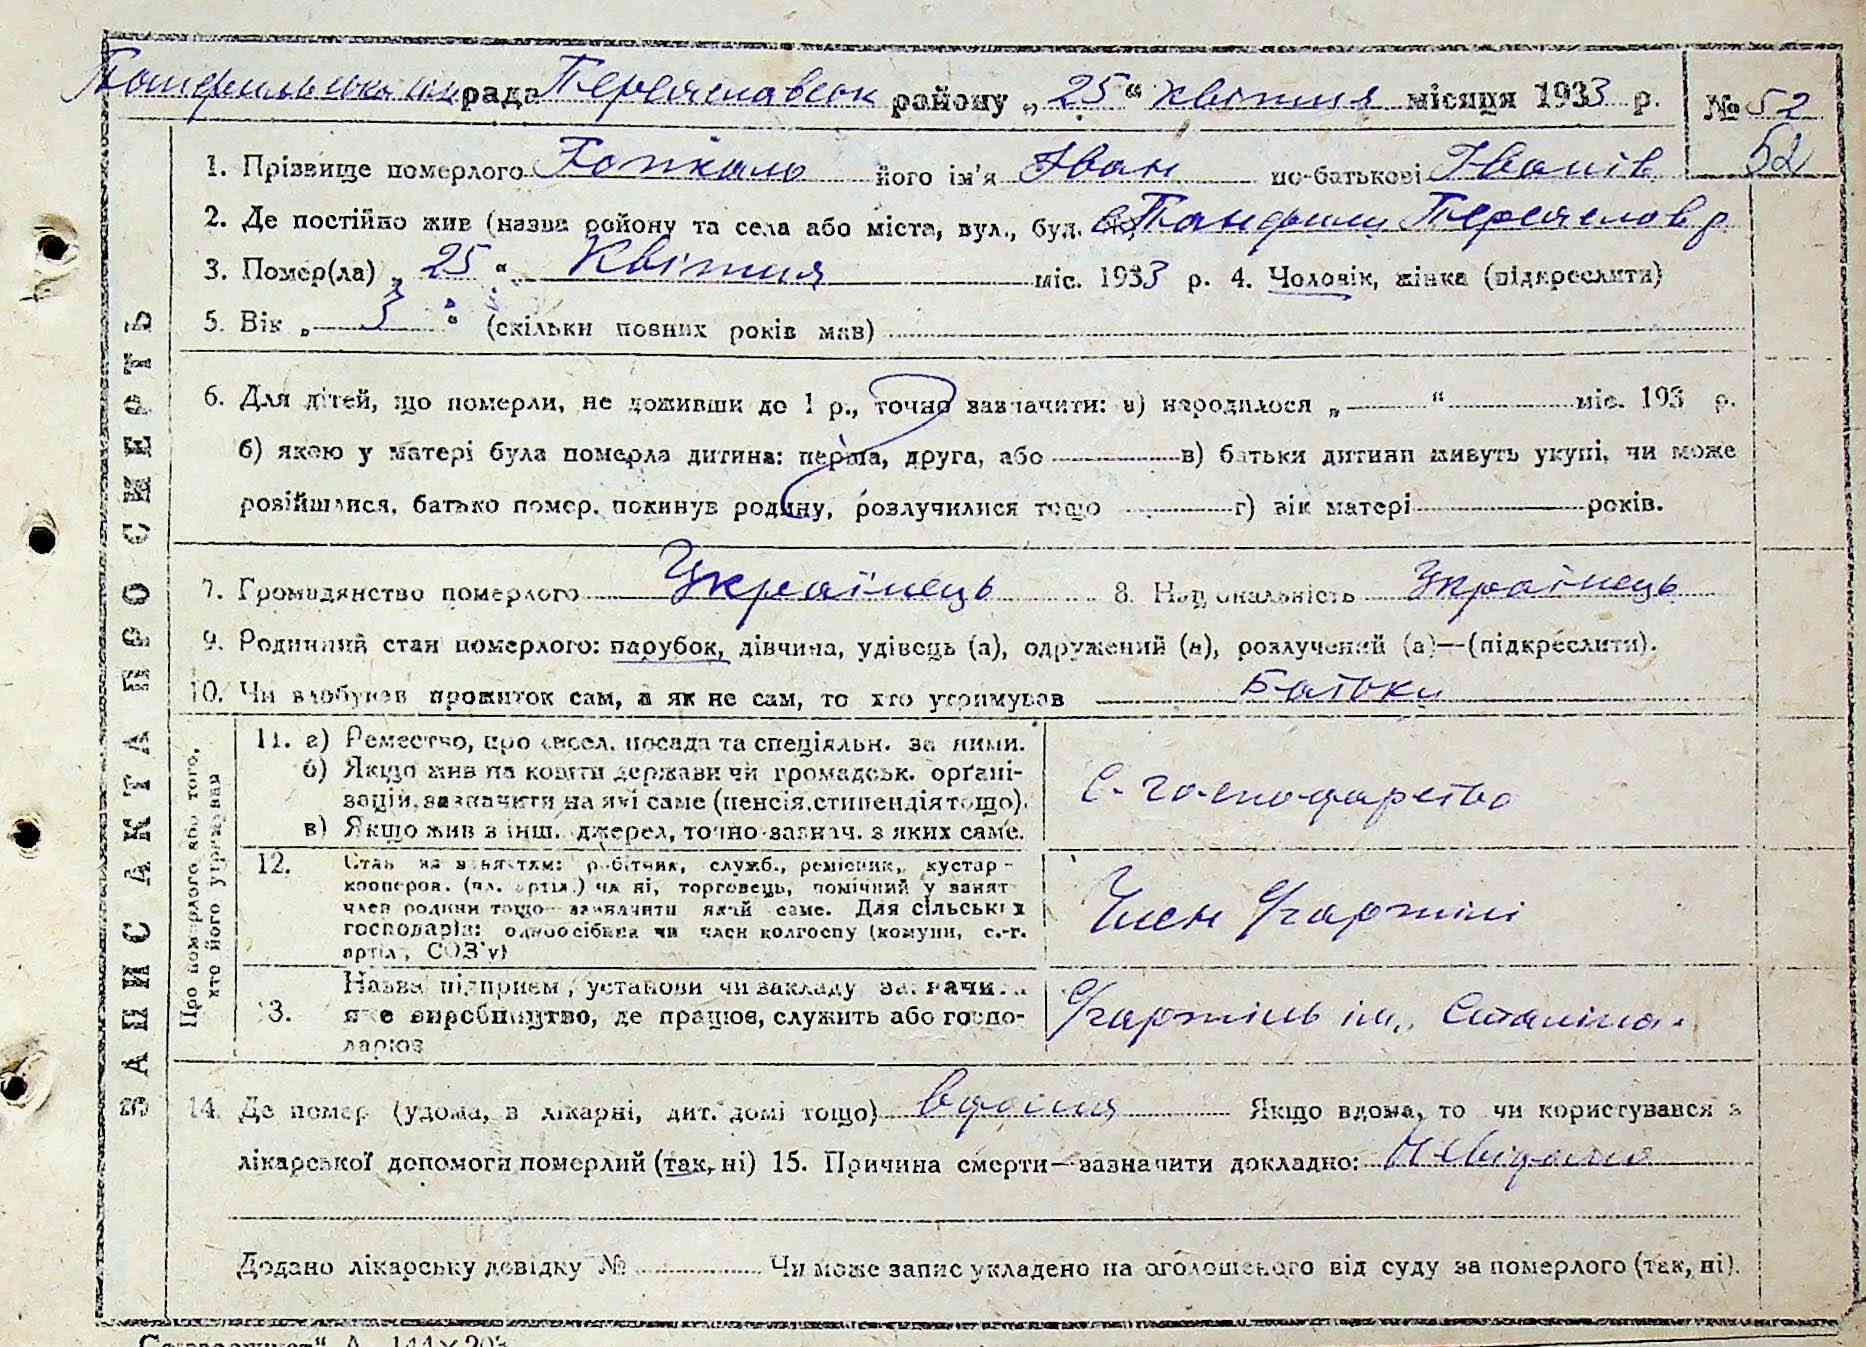 Панфильська рада Переяславськ району „ 25 “ квітня місяця 1933 р. № 52
52
1. Прізвище померлого його ім'я Іван по-батькові Іванів
2. Де постійно жив (назва району та села або міста, вул., буд. Панфили Переяслав р
3. Помер(ла) „ 25 “ Квітня міс. 1933 р. 4. Чоловік, жінка (підкреслити)
5. Вік „ 3 “ (скільки повних років мав)
6. Для дітей, що померли, не доживши до 1 р., точно зазначити: а) народилося „ “ міс. 193 р.
б) якою у матері була померла дитина: перша, друга, або в) батьки дитини живуть укупі, чи може
розійшлися, батько помер, покинув родину, розлучилися тощо г) вік матері років.
7. Громадянство померлого Українець 8. Національність Українець
9. Родинний стан померлого: парубок, дівчина, удівець (а), одружений (а), розлучений (а)—(підкреслити).
10. Чи здобував прожиток сам, а як не сам, то хто утримував Батьки
ЗАПИС АКТА ПРО СМЕРТЬ
Про померлого або того,
хто його утримував
11. а) Ремество, професл. посада та спеціяльн. за ними.
б) Якщо жив на кошти держави чи громадськ. організацій, зазначити на які саме (пенсія, стипендія тощо).
в) Якщо жив з інш. джерел, точно зазнач. з яких саме.
С. господарство
12. Стан за заняттям: робітник, служб., ремісник, кустар-
кооперов. (чл. артіл.) чи ні, торговець, помічний у занят
член родини тощо—зазначити який саме. Для сільських
господарів: одноосібник чи член колгоспу (комуни, с.-г.
артіл., СОЗ'у)
Член с/г артілі
13. Назва підприєм., установи чи закладу зазначити
яке виробництво, де працює, служить або госпо-
дарює
с/г артіль ім. Сталіна.
14. Де помер (удома, в лікарні, дит. домі тощо) вдома Якщо вдома, то чи користувався з
лікарської допомоги померлий (так, ні) 15. Причина смерти—зазначити докладно: Невідома
Додано лікарську довідку № Чи може запис укладено на оголошеного від суду за померлого (так, ні).
А. 144×203